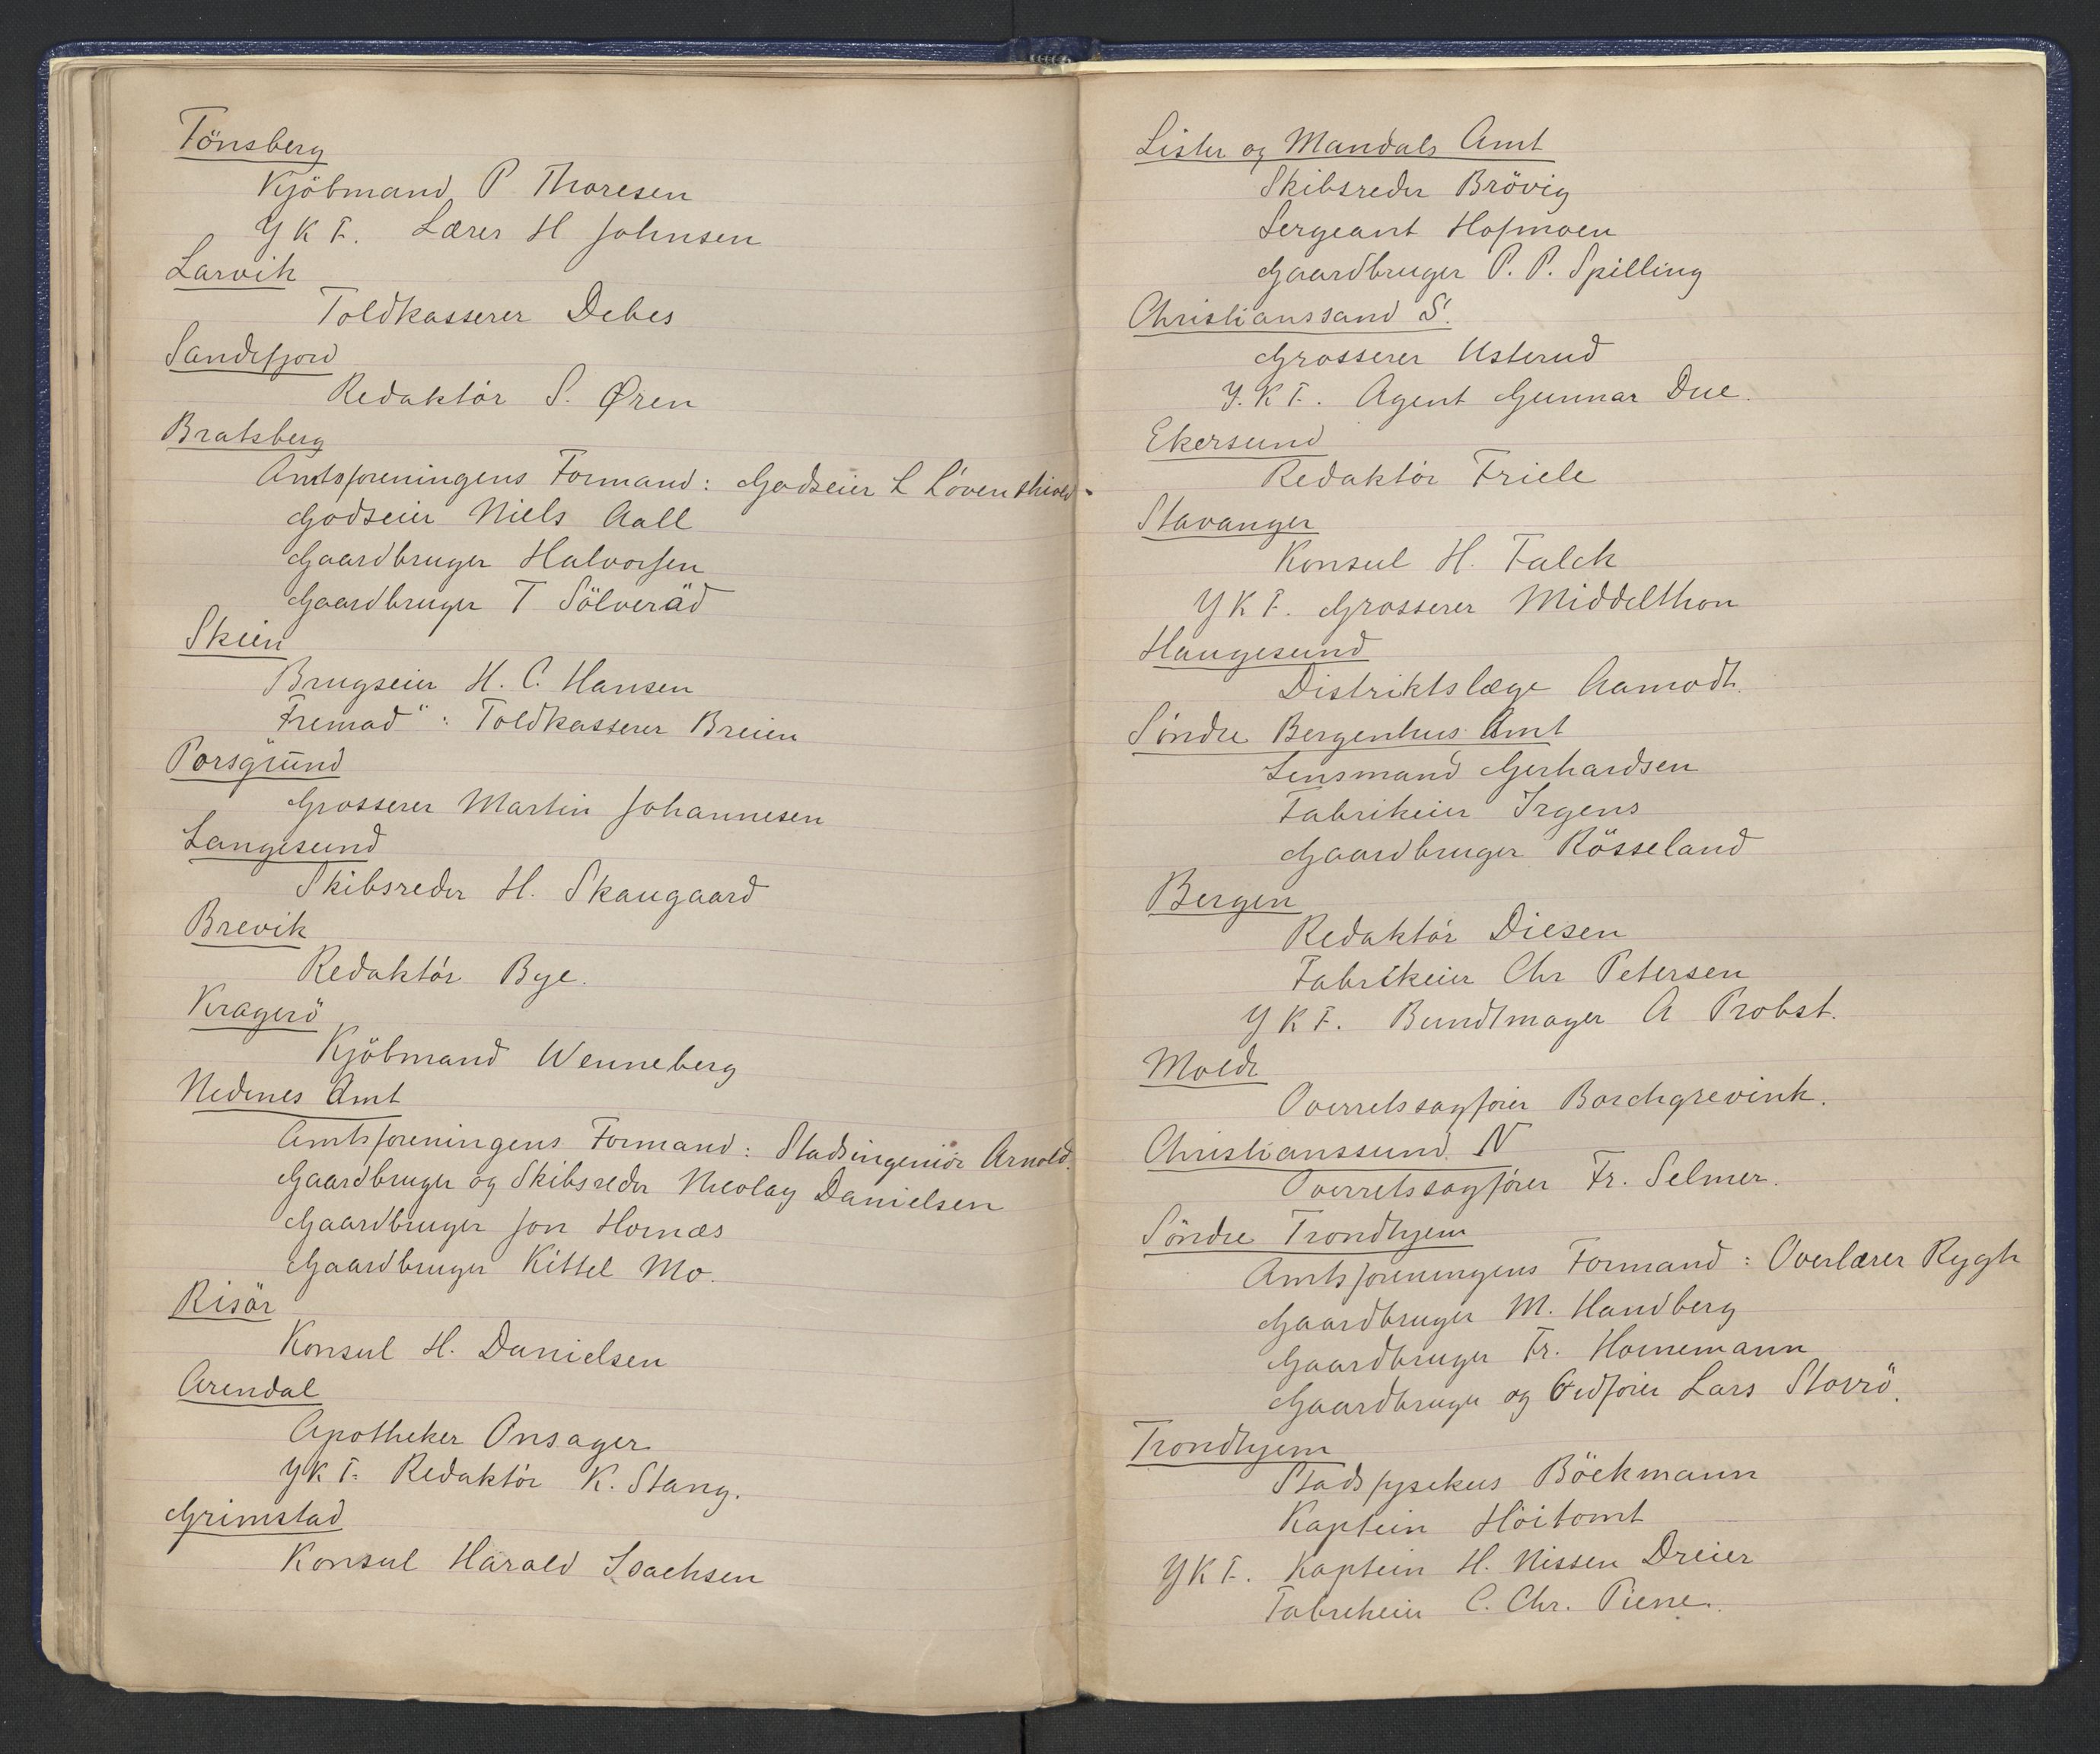 Tönsberg
Kjöbmand P Thoresen
Y K F. Lærer H Johnsen
Larvik
Toldkasserer Debes
Sandefjord
Redaktör S. Øren
Bratsberg
Amtsforeningens Formand: Godseier L Lövenskiold
Godseier Niels Aall
Gaardbruger Halvorsen
Gaardbruger T Sölveräd
Skien
Brugseier H. C. Hansen
Fremad": Toldkasserer Breien
Porsgrund
Grosserer Martin Johannesen
Langesund
Skibsreder H. Skaugaard
Brevik
Redaktör Bye.
Kragerö
Kjöbmand Wenneberg
Nedenes Amt
Amtsforeningens Formand: Stadsingeniör Arnold.
Gaardbruger og Skibsreder Nicolay Danielsen
Gaardbruger Jon Hornæs
Gaardbruger Kittel Mo.
Risör
Konsul H. Danielsen
Arendal
Apotheker Onsager
Y K F. Redaktör K. Stang.
Grimstad
Konsul Harald Isachsen
Lister og Mandals Amt
Skibsreder Brövig
Sergeant Hofmoen
Gaardbruger P. P. Spilling
Christianssand S.
Grosserer Usterud
Y. K F. Agent Gunnar Due.
Ekersund
Redaktör Friele
Stavanger
Konsul H. Falck
Y K F. Grosserer Middelthon
Haugesund
Distriktslæge Aamodt.
Söndre Bergenhus Amt
Lensmand Gerhardsen
Fabrikeier Irgens
Gaardbruger Rösseland
Bergen
Redaktör Diesen
Fabrikeier Chr Petersen
Y K F. Bundtmager A Probst.
Molde
Overretssagförer Borchgrevink.
Christianssund N
Overretssagförer Fr. Selmer.
Söndre Trondhjem
Amtsforeningens Formand: Overlærer Rygh
Gaardbruger M. Handberg
Gaardbruger Fr. Hornemann
Gaardbruger og Ordförer Lars Stovrö.
Trondhjem
Stadsfysikus Böckmann
Kaptein Höitomt
Y K F. Kaptein H. Nissen Dreier
Fabrikeier C. Chr. Piene.